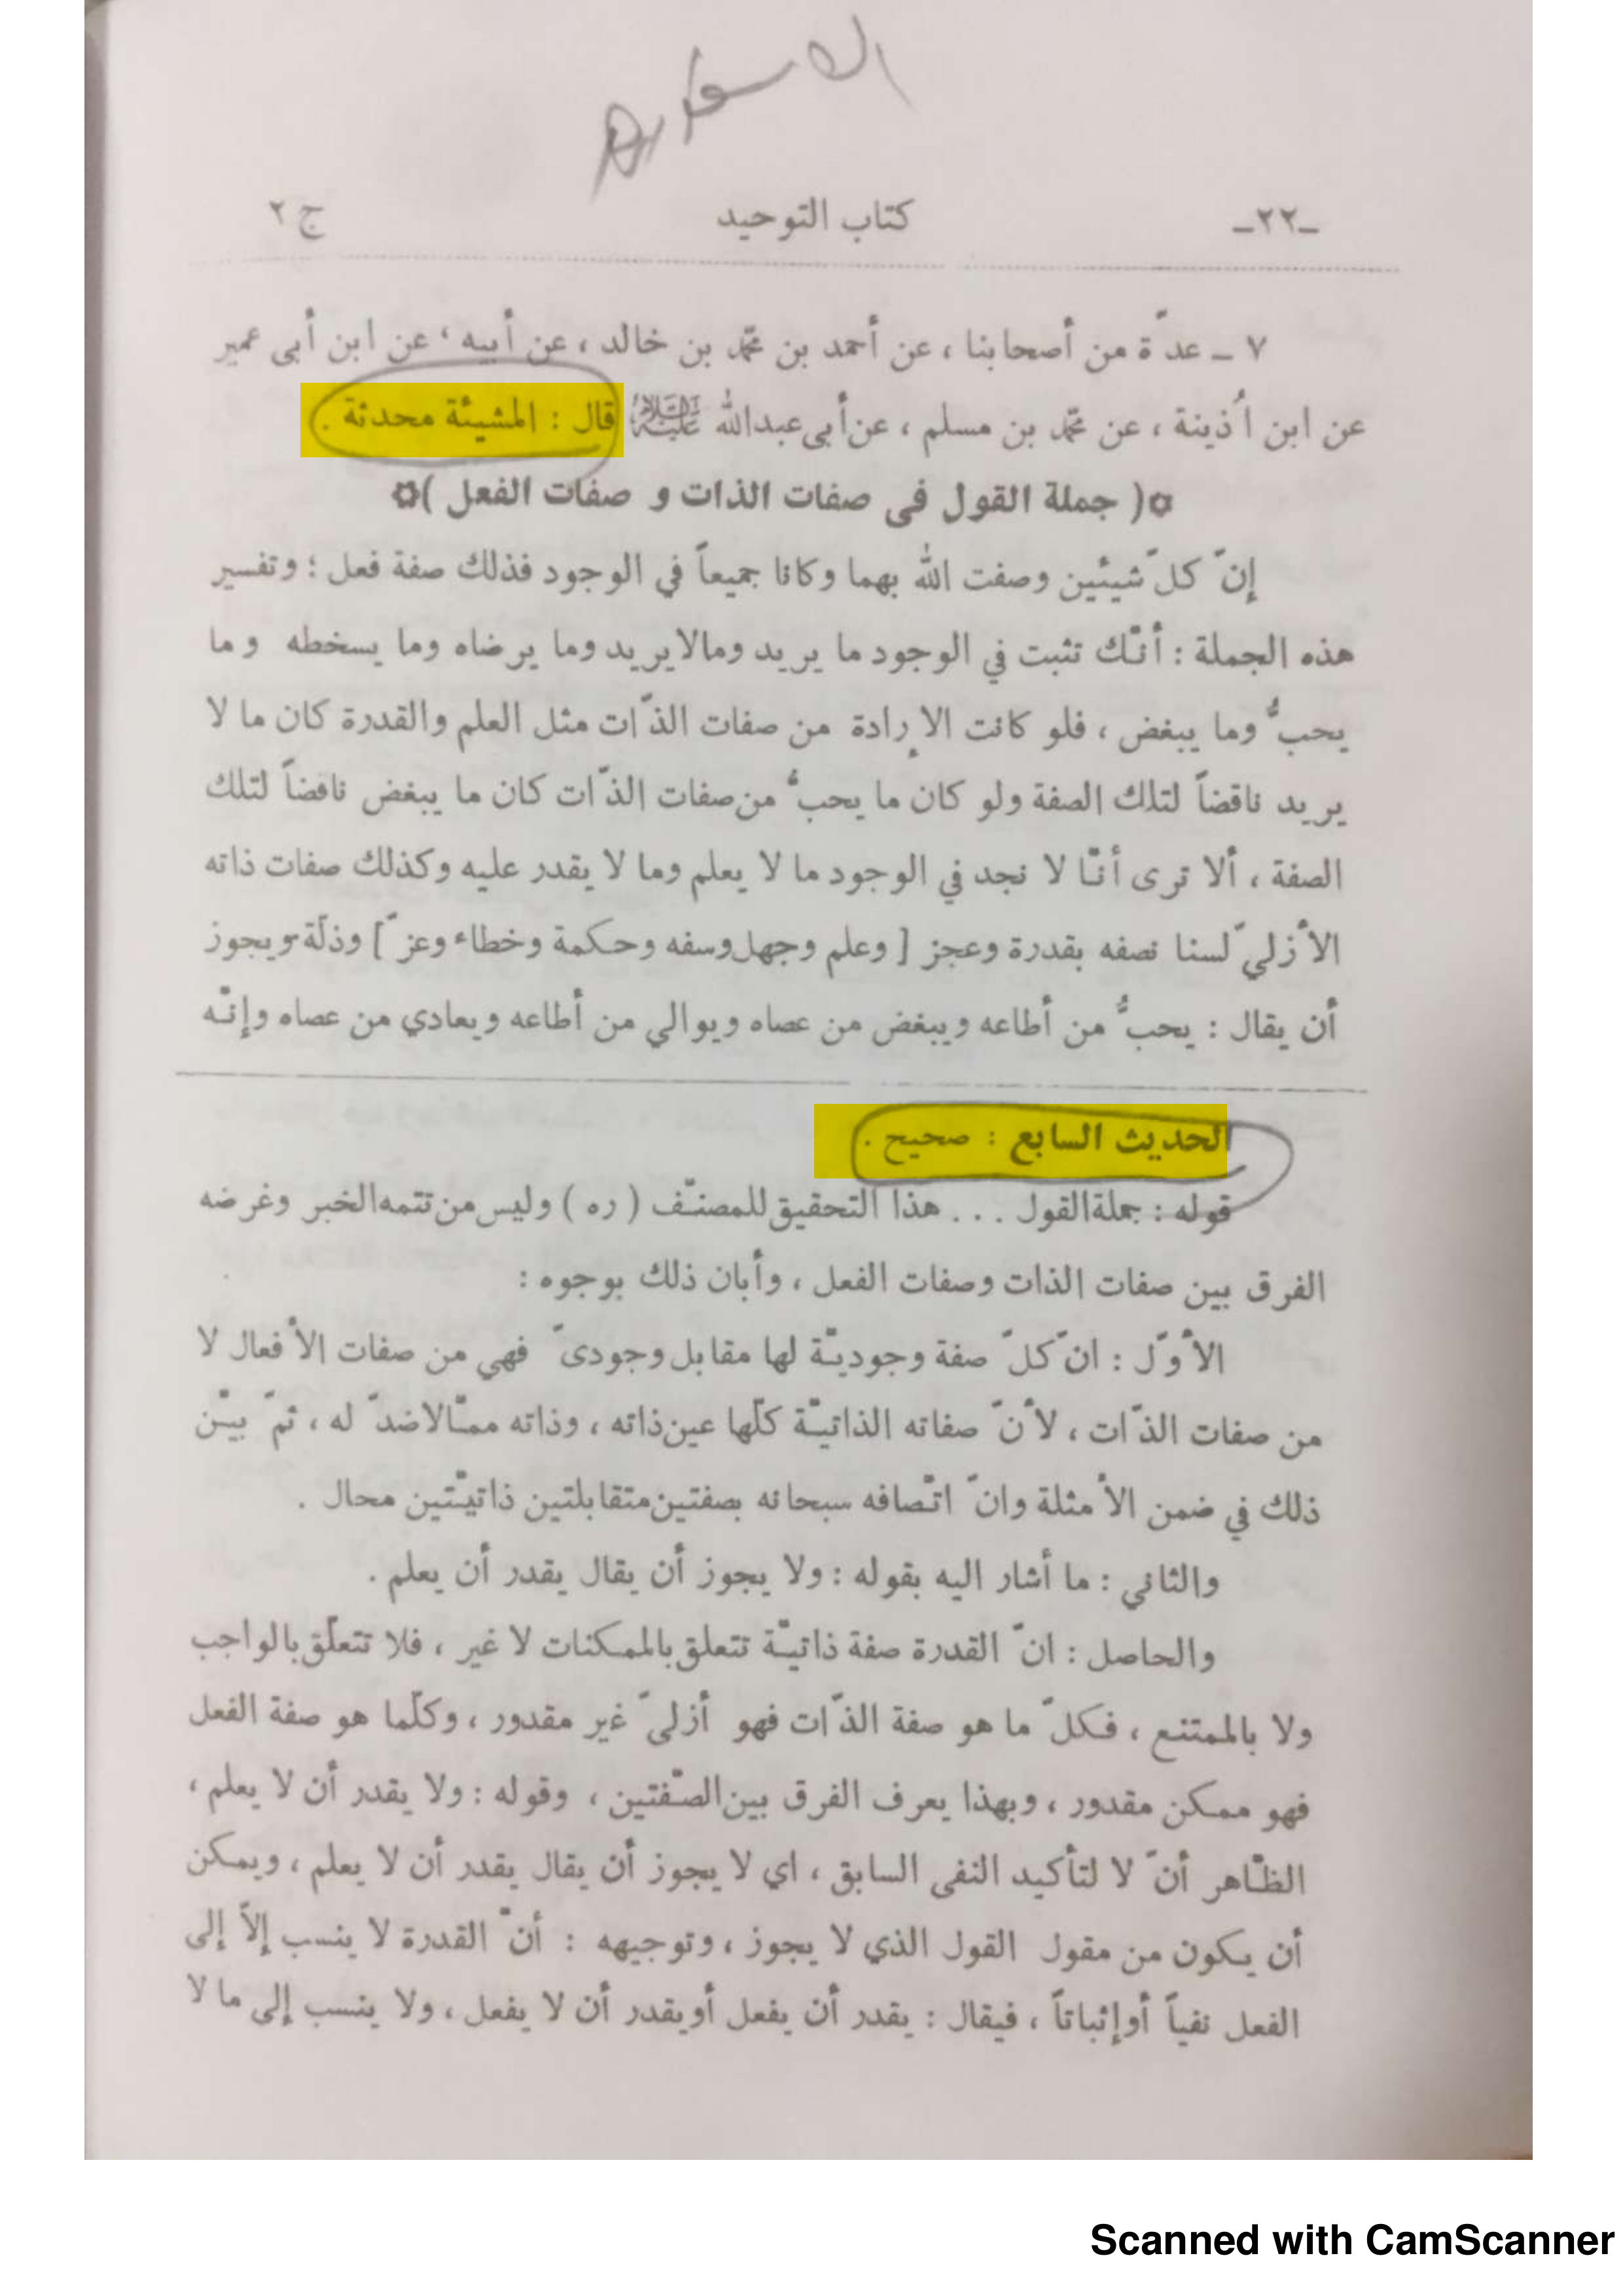 -٢٢-
كتاب التوحيد
ج ٢
٧ ـ عدّة من أصحابنا ، عن أحمد بن محمّد بن خالد ، عن أبيه ، عن ابن أبي عمير
عن ابن اُذينة ، عن محمّد بن مسلم ، عن أبي عبدالله عليه السلام قال : المشيئة محدثة .
¤( جملة القول في صفات الذات و صفات الفعل )¤
إنّ كلّ شيئين وصفت الله بهما وكانا جميعاً في الوجود فذلك صفة فعل ؛ وتفسير
هذه الجملة : أنّك تثبت في الوجود ما يريد ومالايريد وما يرضاه وما يسخطه و ما
يحبُّ وما يبغض ، فلو كانت الإرادة من صفات الذّات مثل العلم والقدرة كان ما لا
يريد ناقضاً لتلك الصفة ولو كان ما يحبُّ من صفات الذّات كان ما يبغض ناقضاً لتلك
الصفة ، ألا ترى أنّا لا نجد في الوجود ما لا يعلم وما لا يقدر عليه وكذلك صفات ذاته
الأزليّ لسنا نصفه بقدرة وعجز [ وعلم وجهل وسفه وحكمة وخطاء وعزّ ] وذلّة ويجوز
أن يقال : يحبُّ من أطاعه ويبغض من عصاه ويوالي من أطاعه ويعادي من عصاه وإنّه
الحديث السابع : صحيح .
قوله : جملة القول . . . هذا التحقيق للمصنّف ( ره ) وليس من تتمه الخبر وغرضه
الفرق بين صفات الذات وصفات الفعل ، وأبان ذلك بوجوه :
الأوّل : انّ كلّ صفة وجوديّة لها مقابل وجودىّ فهي من صفات الأفعال لا
من صفات الذّات ، لأنّ صفاته الذاتيّة كلّها عين ذاته ، وذاته ممّا لاضدّ له ، ثمّ بيّن
ذلك في ضمن الأمثلة وانّ اتّصافه سبحانه بصفتين متقابلتين ذاتيّتين محال .
والثاني : ما أشار اليه بقوله : ولا يجوز أن يقال يقدر أن يعلم .
والحاصل : انّ القدرة صفة ذاتيّة تتعلق بالممكنات لا غير ، فلا تتعلّق بالواجب
ولا بالممتنع ، فكلّ ما هو صفة الذّات فهو أزلىّ غير مقدور ، وكلّما هو صفة الفعل
فهو ممكن مقدور ، وبهذا يعرف الفرق بين الصّفتين ، وقوله : ولا يقدر أن لا يعلم ،
الظّاهر أنّ لا لتأكيد النفى السابق ، اي لا يجوز أن يقال يقدر أن لا يعلم ، ويمكن
أن يكون من مقول القول الذي لا يجوز ، وتوجيهه : أنّ القدرة لا ينسب إلاّ إلى
الفعل نفياً أوإثباتاً ، فيقال : يقدر أن يفعل أويقدر أن لا يفعل ، ولا ينسب إلى ما لا
Scanned with CamScanner